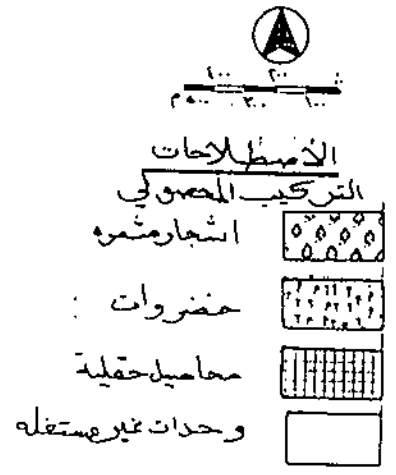 ٤٠٠ ٢٠٠
٥٠٠م ٣٠٠ ١٠٠
الأصطلاحات
التركيب المحصولي
اشجار مثمره
خضروات :
محاصيل حقلية
وحدات غير مستغله